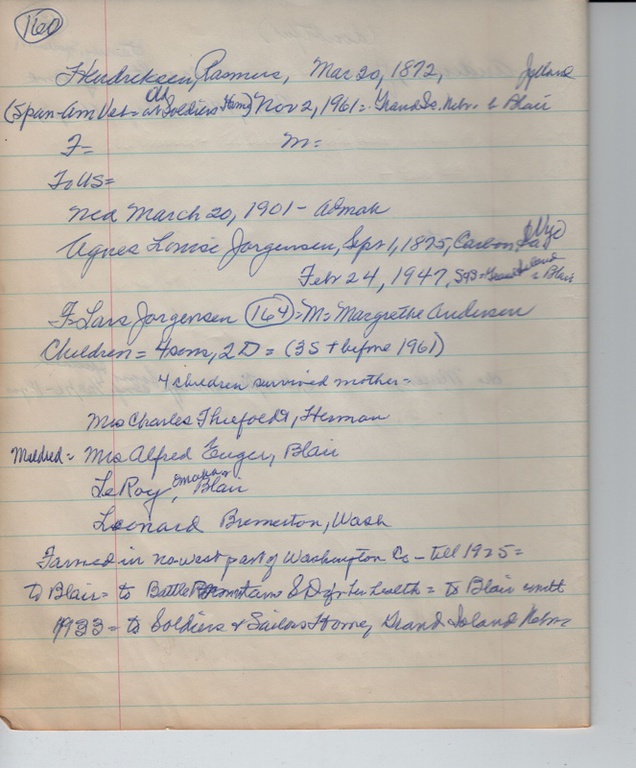 160
Hendriksen, Rasmus, Mar 20, 1872, Jylland
(Span-Am Vet = at Soldiers Home) Nov 2, 1961 = Grand Is. Nebr. b Blair
F= M=
To US=
Med March 20, 1901 - Admah
Agnes Louise Jorgensen, Sept 1, 1875, Carbon Wyo
Feb 24, 1947, Grand Island b Blair
F= Lars Jorgensen (164) = M= Margrethe Anderson
Children = 4 sons, 2 D = (3S + before 1961)
4 children survived mother =
Mrs Charles Thiefoldt, Herman
Mildred = Mrs Alfred Buger, Blair
LeRoy, Omaha Blair
Leonard Bremerton, Wash
Farmed in nowest part of Washington Co - till 1925 =
to Blair = to Battle Mountain S D for his health = to Blair until
1933 = to Soldiers & Sailors Home, Grand Island Nebr